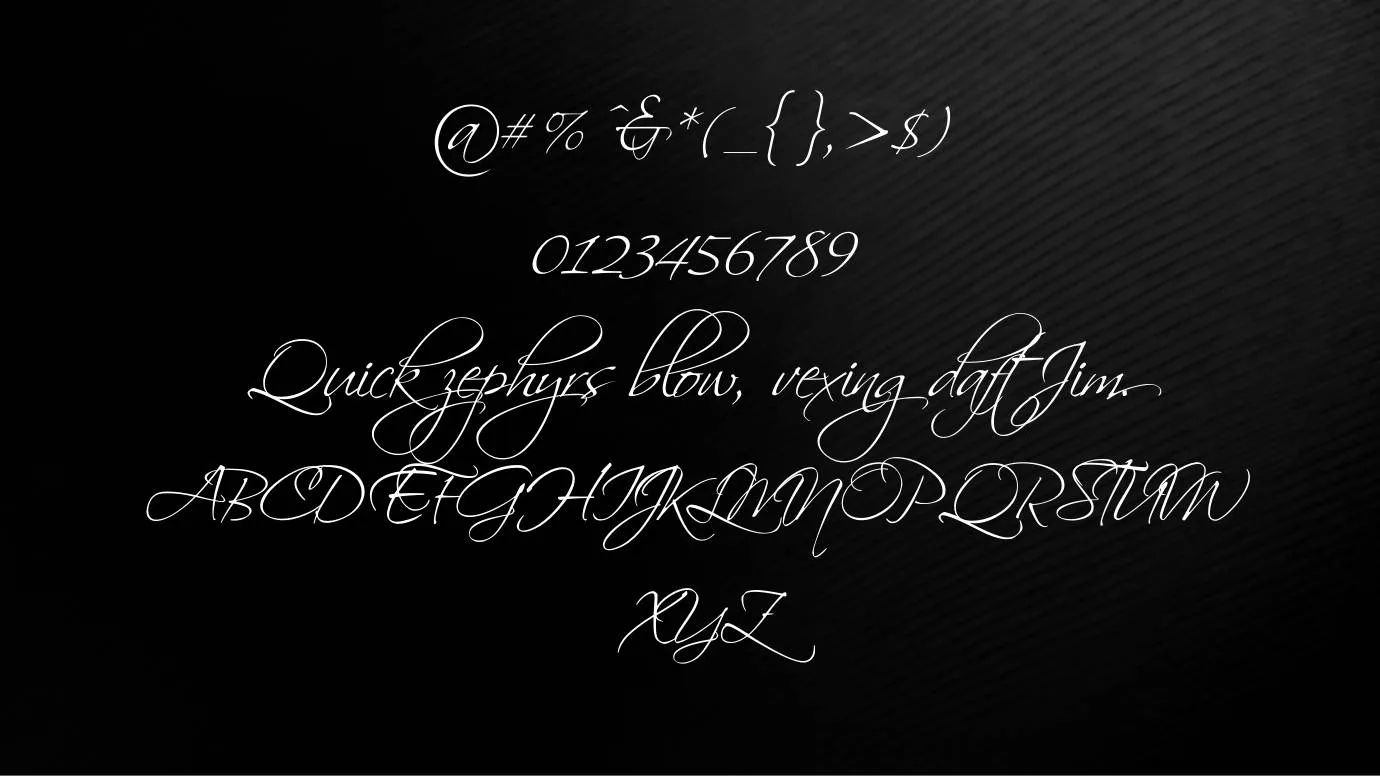 @#% ^&*(_{},>$)
0123456789
Quick zephyrs blow, vexing daft Jim.
ABCDEFGHIJKLMNOPQRSTUVW
XYZ